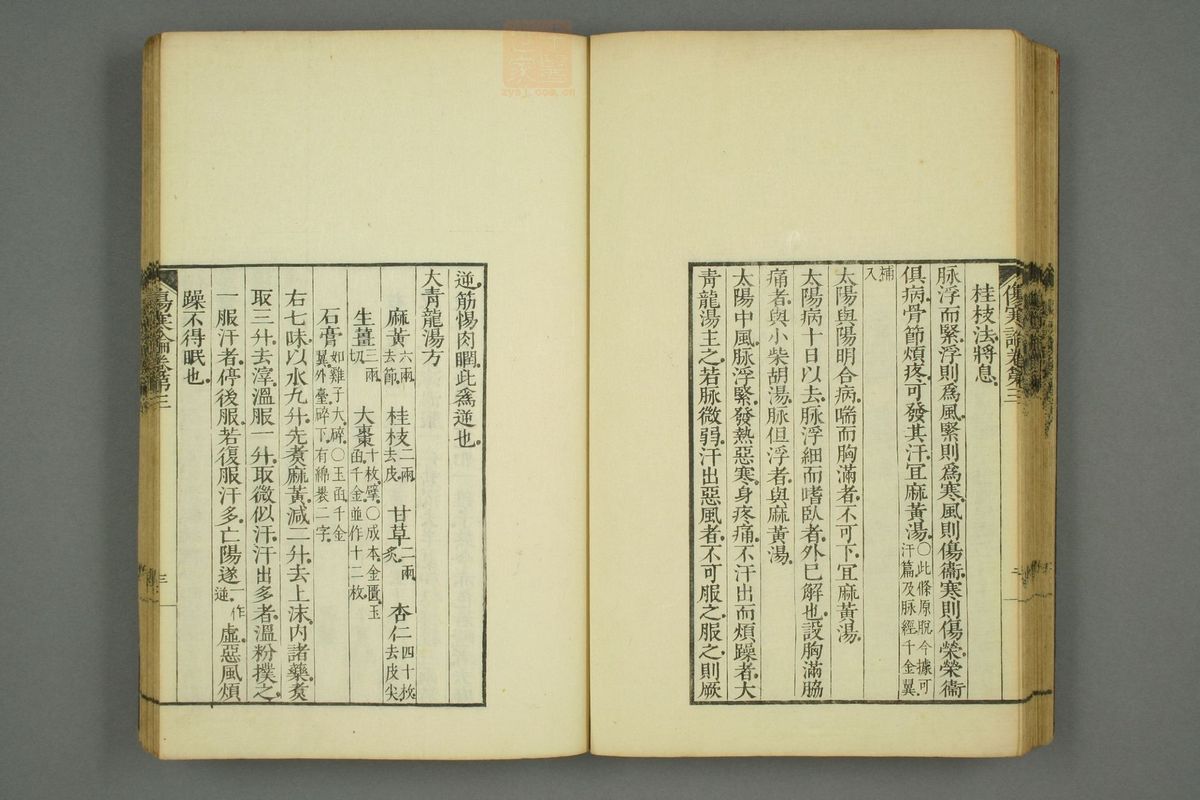 傷寒論卷第三
桂枝法將息。
脉浮而緊。浮則爲風。緊則爲寒。風則傷衞。寒則傷榮。榮衞
俱病。骨節煩疼。可發其汗。宜麻黃湯。〇此條原脫今據可汗篇及脉經千金翼
補入
太陽與陽明合病。喘而胸滿者。不可下。宜麻黃湯。
太陽病十日以去。脉浮細而嗜臥者。外已解也。設胸滿脇
痛者。與小柴胡湯。脉但浮者。與麻黃湯。
太陽中風。脉浮緊。發熱惡寒。身疼痛。不汗出而煩躁者。大
青龍湯主之。若脉微弱。汗出惡風者。不可服之。服之則厥
逆。筋惕肉瞤。此爲逆也。
大青龍湯方
麻黃六兩去節 桂枝二兩去皮 甘草二兩炙 杏仁四十枚去皮尖
生薑三兩切 大棗十枚擘。〇成本。金匱。玉函。千金。並作十二枚。
石膏如雞子大。碎。〇玉函千金翼。外臺碎下。有綿裹二字。
右七味。以水九升。先煑麻黃。減二升。去上沫。內諸藥。煑
取三升。去滓。溫服一升。取微似汗。汗出多者。溫粉撲之。
一服汗者。停後服。若復服。汗多。亡陽遂一作逆。虛。惡風煩
躁不得眠也。
傷寒論卷第三
三
zysj.com.cn